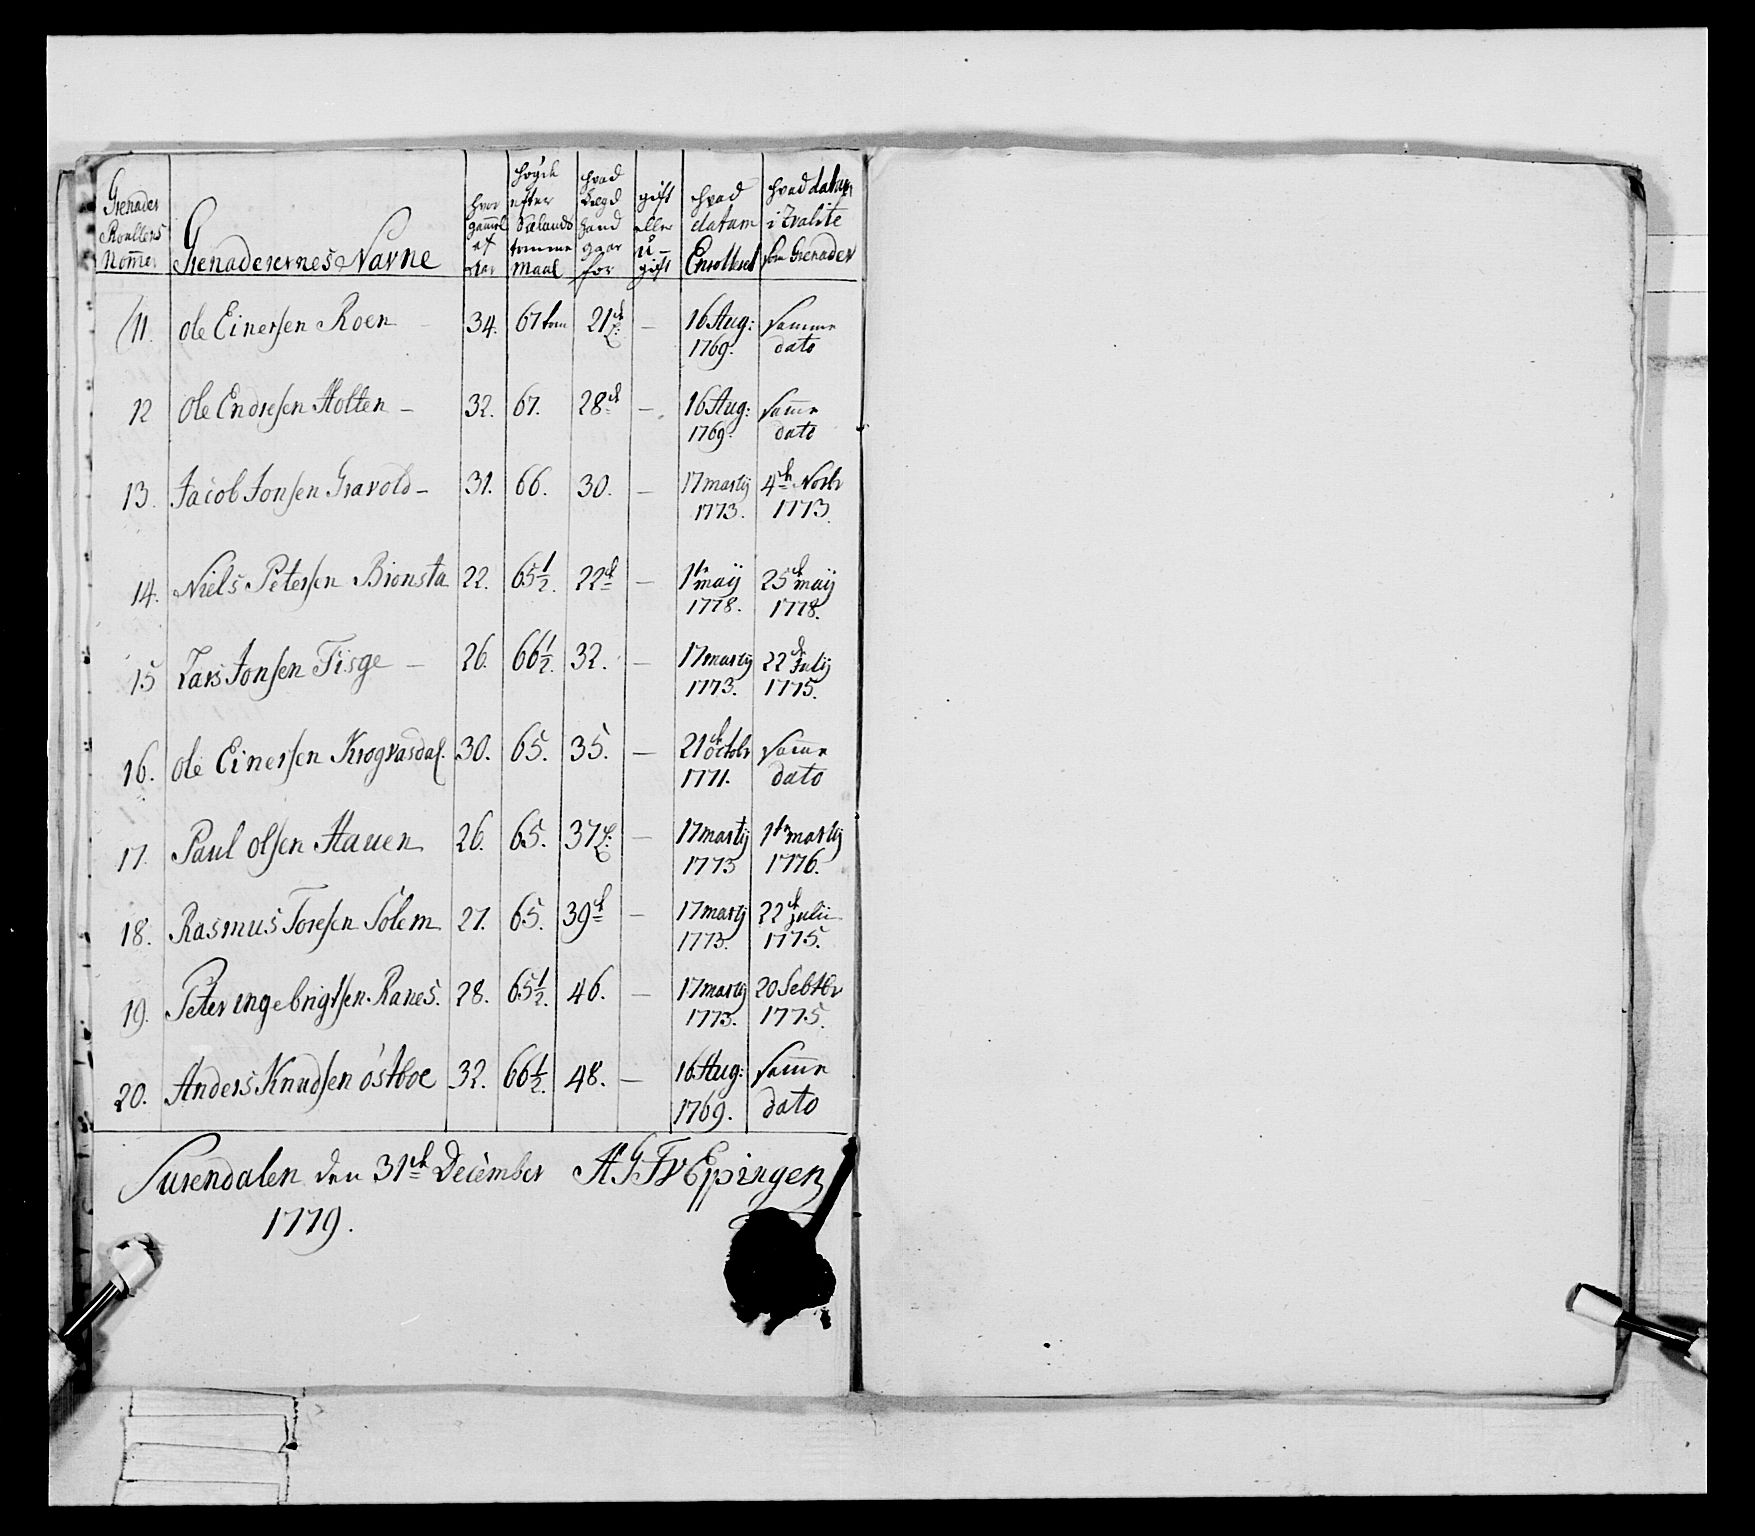 Grenader Roullens Nom̅er | Grenaderernes Navne | hvor gam̅el af Aar | høyde efter Siælands tomme Maal | hvad Lægd hand gaar for | gift eller u-gift | hvad datum Enrolleret | hvad datum i Qvalite som Grenader
11. | ole Einersen Roen | 34. | 67 tom | 21de L: | — | 16 Aug: 1769. | Samme dato
12 | Ole Endresen Holten – | 32. | 67. | 28de | — | 16 Aug: 1769. | Sam̅e dato
13. | Jacob Jonsen Gravold – | 31. | 66. | 30. | — | 17 martij 1773. | 4de Novbr 1773.
14. | Niels Petersen Bionsta | 22. | 65 1/2. | 22de | — | 1te maij 1778. | 25de maij 1778.
15 | Lars Jonsen Tisge – | 26. | 66 1/2. | 32. | — | 17 martij 1773. | 22de Julij 1775.
16. | ole Einersen Krogvasdal. | 30. | 65. | 35. | — | 21de octobr 1771. | Sam̅e dato
17. | Paul olsen Hauen | 26. | 65. | 37 L: | — | 17 martij 1773 | 1te martij 1776.
18. | Rasmus Toresen Solem | 27. | 65. | 39de | — | 17 martij 1773. | 22de Julii 1775.
19. | Peter ingebrigtsen Ranes. | 28. | 65 1/2. | 46. | — | 17 martij 1773. | 20 Sebtbr 1775.
20. | Anders Knudsen østboe | 32. | 66 1/2. | 48. | — | 16 Aug: 1769. | Sam̅e dato
Surendalen den 31de December A G F v Eppingen
1779.